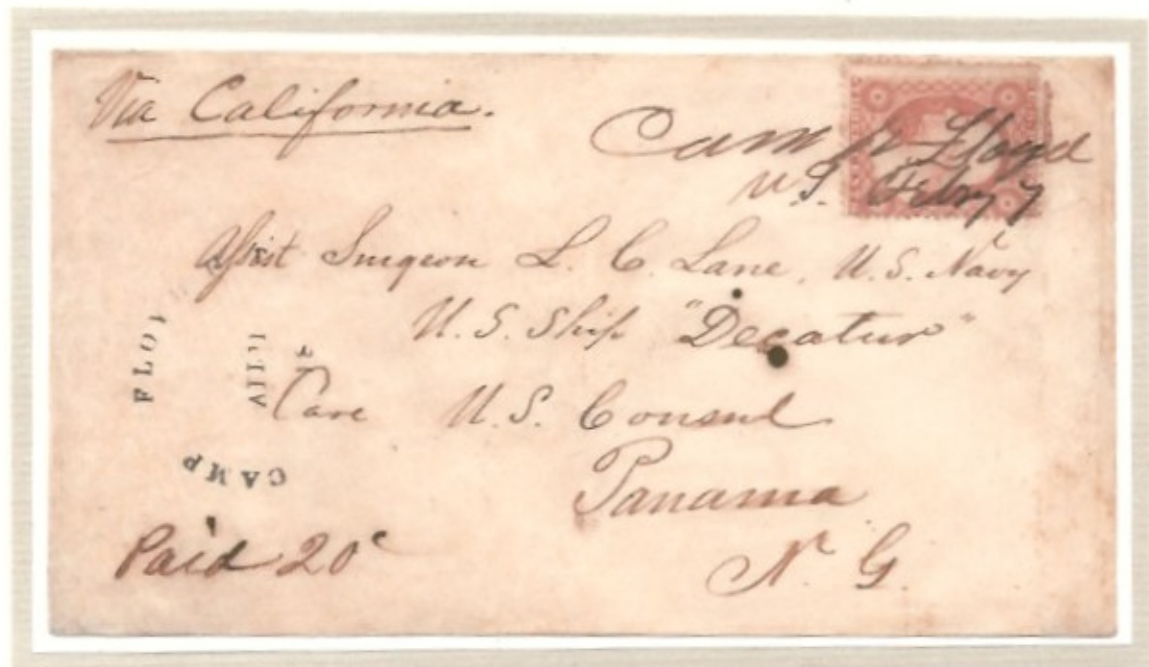 Via California.
Camp Floyd
Feby 7
Assist Surgeon L. C. Lane, U.S. Navy
U.S. Ship "Decatur"
Care U.S. Consul
Panama
N. G.
CAMP FLO
Paid 20c